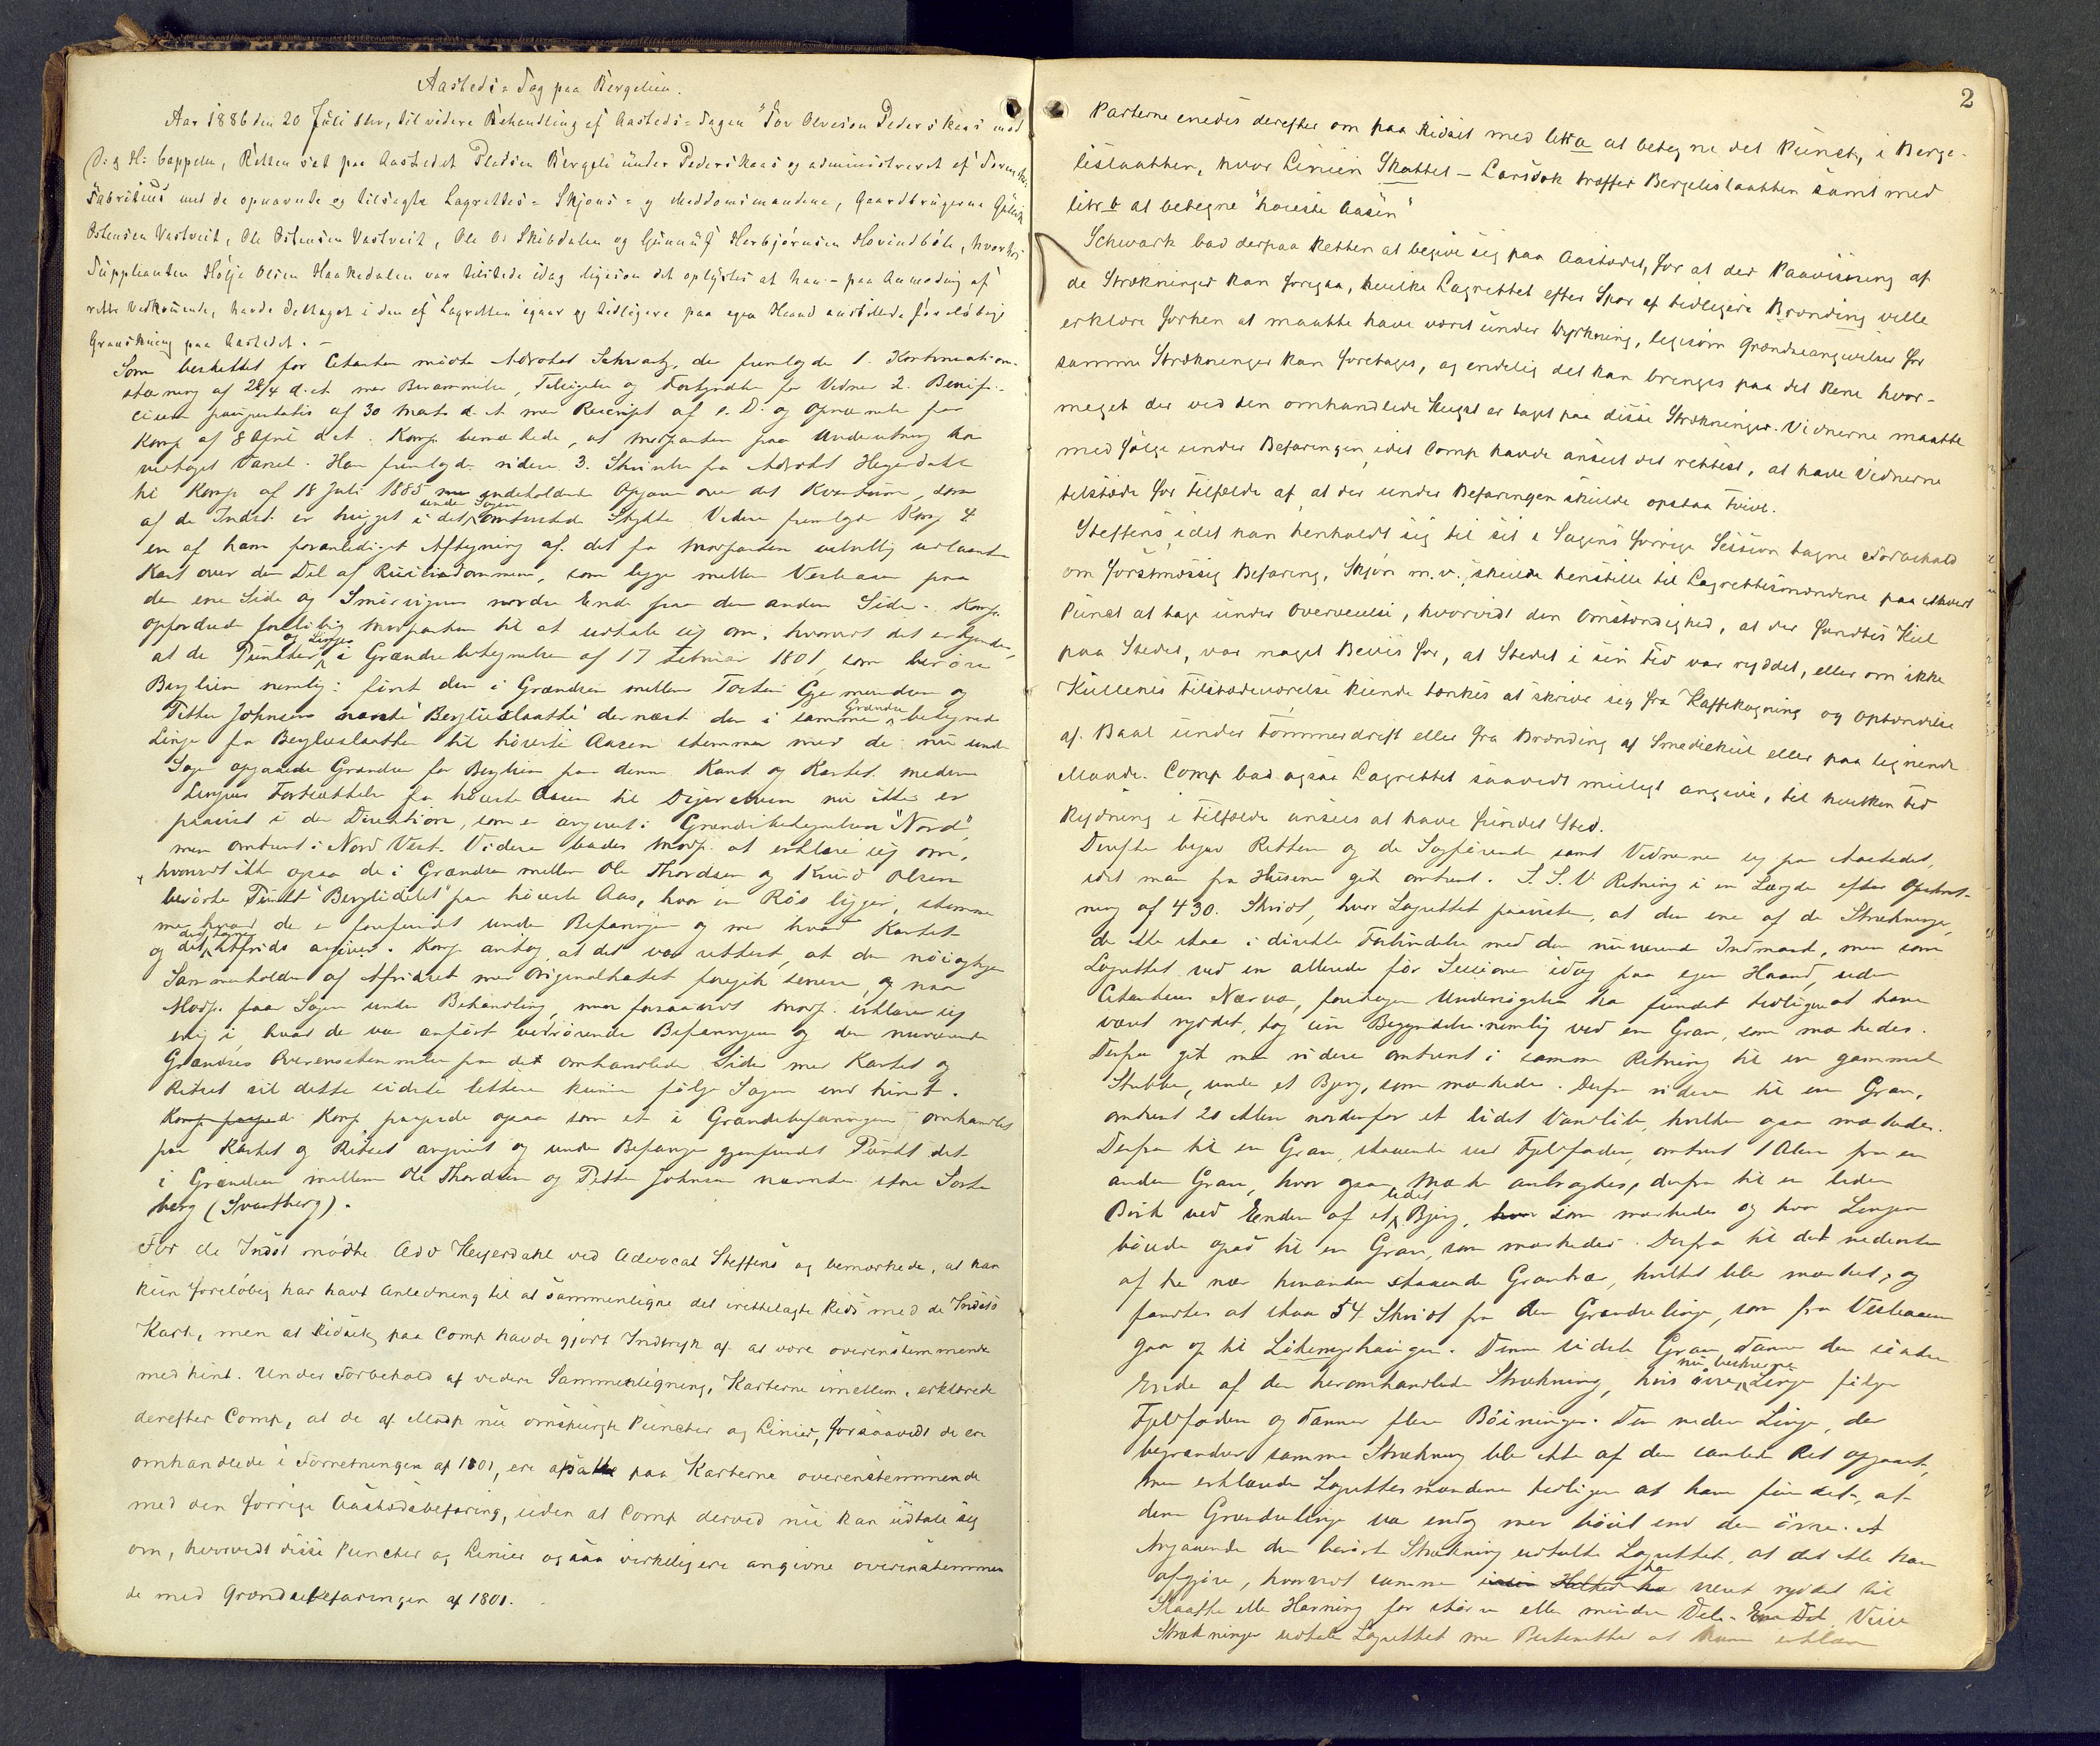 Aasteds=Sag paa Bergelien.
Aar 1886 den 20 Juli blev, til videre Behandling af Aasteds=Sagen "Tov Olveson Pederskaas mod
D: & H: Cappelen, Retten sat paa Aastedet Pladsen Bergeli under Pederskaas og administreret af Sorenskr.
Fabritius med de opnævnte og tilsagte Lagrettes= Skjøns= og Meddomsmændene, Gaardbrugerne
Østensen Vastveit, Ole Østensen Vastveit, Ole Os Skibdalen og Gunnuf Herbjørnsen Hovindbøle, hvorhos
Supplianten Hølje Olsen Haakedalen var tilstede idag ligesom det oplystes at han - paa Anmodning af
rette Vedkommende, havde deltaget i den af Lagretten igaar og tidligere paa egen Haand anstillede foreløbige
Granskning paa Aastedet. -
Som beskikket for Citanten mødte Advokat Schwartz, der fremlagde 1. Kontinuations-
stævning af 28/4 d. A. med Berammelse, Tilsigelse og Forkyndelse for Vidner 2. Benefi-
cium paupertatis af 30 Marts d. A. med Rescript af s. D. og Opnævnelse for
Komp af 8 April d. A. Komp. bemærkede, at Modparten paa Underretning har
vedtaget Varsel. Han fremlagde videre 3. Skrivelse fra Advokat Heyerdahl
til Komp af 18 Juli 1885 indeholdende Opgave over det Kvantum, som
af de Indst. er hugget i det under Sagen omtvistede Stykke. Videre fremlagde Komp 4
en af ham foranlediget Aftegning af det fra Modparten velvillig udlaante
Kart over den Del af Eiendommen, som ligger mellem Vesleaasen paa
den ene Side og nordre Ende paa den anden Side. Komp.
opfordrede foreløbig Modparten til at udtale sig om, hvorvidt det erkjendes,
at de Punkter og Linjer i Grændsebetegnelsen af 17 Februar 1801, som berører
Berglien nemlig: først den i Grændsen mellem og
Petter Johnsens nævnte "Berglieslaatte" dernæst den i samme Grændse betegnede
Linje fra Bergliesslaatten til høieste Aasen stemmer med de nu under
Sagen opgaaede Grændser for Berglien paa denne Kant og Kartet medens
Linjens Fortsættelse fra høieste Aasen til nu ikke er
paavist i den Direktion, som er angivet i Grændsebetegnelsen "Nord",
men omtrent i Nord Vest. Videre bades Modp. at erklære sig om,
hvorvidt ikke ogsaa de i Grændsen mellem Ole Thordsen og Knud Olsen
berørte Punkt "Berglidelet" paa høieste Aas, hvor en Røs ligger, stemmer
med hvad der er forefundet under Befaringen og med hvad Kartet
og det deraf tagne Afrids angiver. Komp. antog, at det var rettest, at den nøiagtige
Sammenholden af Afridset med Originalkartet foregik senere, og naar
Modp. faar Sagen under Behandling, men forsaavidt Modp. erklærer sig
enig i, hvad der var anført vedrørende Befaringen og den nuværende
Grændses Overensstemmelse paa det omhandlede Side med Kartet og
Ridset vil dette sidste lettere kunne følge Sagen end hint.
Komp. paapegede ogsaa som et i Grændsebefaringen omhandlet
paa Kartet og Ridset angivet og under Befaringen gjenfundet Punkt det
i Grændsen mellem Ole Thordsen og Petter Johnsen nævnte store Sorte
berg (Svartberg).
For de Indst mødte Adv Heyerdahl ved Advocat Steffens og bemærkede, at han
kun foreløbig har havt Anledning til at sammenligne det irettelagte Rids med de Indsts
Kart, men at Ridset paa Comp havde gjort Indtryk af at være overensstemmende
med hint. Under Forbehold af videre Sammenligning, Karterne imellem, erklærede
derefter Comp, at de af Modp nu omspurgte Puncter og Linier, forsaavidt de ere
omhandlede i Forretningen af 1801, ere afsatte paa Karterne overensstemmende
med den forrige Aastedsbefaring, uden at Comp derved nu kan udtale sig
om, hvorvidt disse Puncter og Linier ogsaa virkelig ere angivne overensstemmen
de med Grændsebefaringen af 1801.
2
Parterne enedes derefter om paa Ridset med littr a at betegne det Punct, i Berge-
lislaatten, hvor Linien Skottet - Larsdok træffer Bergelislaatten samt med
litr b at betegne "høieste Aasen"
Schwartz bad derpaa Retten at begive sig paa Aastedet, for at der Paavisning af
de Strækninger kan foregaa, hvilke Lagrettet efter Spor af tidligere Brænding ville
erklære forhen at maatte have været under Dyrkning, ligesom Grændseangivelser for
samme Strækninger kan foretages, og endelig det kan bringes paa det Rene hvor-
meget der ved den omhandlede Hugst er taget paa disse Strækninger. Vidnerne maatte
med følge under Befaringen, idet Comp havde anseet det rettest, at have Vidnerne
tilstede for Tilfælde af at der under Befaringen skulde opstaa Tvivl.
Steffens, idet han henholdt sig til sit i Sagens forrige Session tagne Forbehold
om forstmæssig Befaring, Skjøn m.v., skulde henstille til Lagrettesmændene paa ethvert
Punct at tage under Overveielse, hvorvidt den Omstændighed, at der fandtes Kul
paa Stedet, var noget Bevis for, at Stedet i sin Tid var ryddet, eller om ikke
Kullenes Tilstedeværelse kunde tænkes at skrive sig fra Kaffekogning og Optændelse
af Baal under Tømmerdrift eller fra Brænding af Smedekul eller paa lignende
Maade. Comp bad ogsaa Lagrettet saavidt muligt angive, til hvilken Tid
Rydning i Tilfælde ansees at have fundet Sted.
Derefter begav Retten og de Sagførende samt Vidnerne sig paa Aastedet,
idet man fra Husene gik omtrent S.S.V. Retning i en Længde efter Opskridt-
ning af 430 Skridt, hvor Lagrettet paaviste, at den ene af de Strækninger,
de ikke staar i direkte Forbindelse med den nuværende Indmark, men som
Lagrettet ved en allerede før Sessionen idag paa egen Haand, uden
Citantens Nærvær, foretagen Undersøgelse har fundet tidligere at have
været ryddet, tog sin Begyndelse nemlig ved en Gran, som mærkedes.
Derfra gik man videre omtrent i samme Retning til en gammel
Stubbe, under et Bjerg, som mærkedes. Derfra videre til en Gran,
omtrent 20 Alen nordenfor et lidet, hvilken ogsaa mærkedes.
Derfra til en Gran, staaende ved Fjeldfoden, omtrent 1 Alen fra en
anden Gran, hvor ogsaa Mærke anbragtes, derfra til en liden
Birk ved Enden af et lidet Bjerg, som mærkedes og hvor Linjen
bøiede opad til en Gran, som mærkedes. Derfra til det nederste
af tre nær hinanden staaende Grantrær, hvilket blev mærket, og
fandtes at staa 54 Skridt fra den Grændselinje, som fra Vesleaasen
gaar op til. Denne sidste Gran danner den søndre
Ende af den heromhandlede Strækning, hvis øvre nu beskrevne Linje følger
Fjeldfoden og danner flere Bøininger. Den nedre Linje, der
begrændser samme Strækning blev ikke af den samlede Ret opgaaet,
men erklærede Lagrettesmændene tidligere at have fundet, at
denne Grændselinje var endog mer bøiet end den øvre.
Angaaende den berørte Strækning udtalte Lagrettet, at det ikke kan
afgjøre, hvorvidt samme har været ryddet til
Slaatte eller Havning for større eller mindre Del. Visse
Strækninger udtalte Lagrettet med Bestemthed at kunne erklære